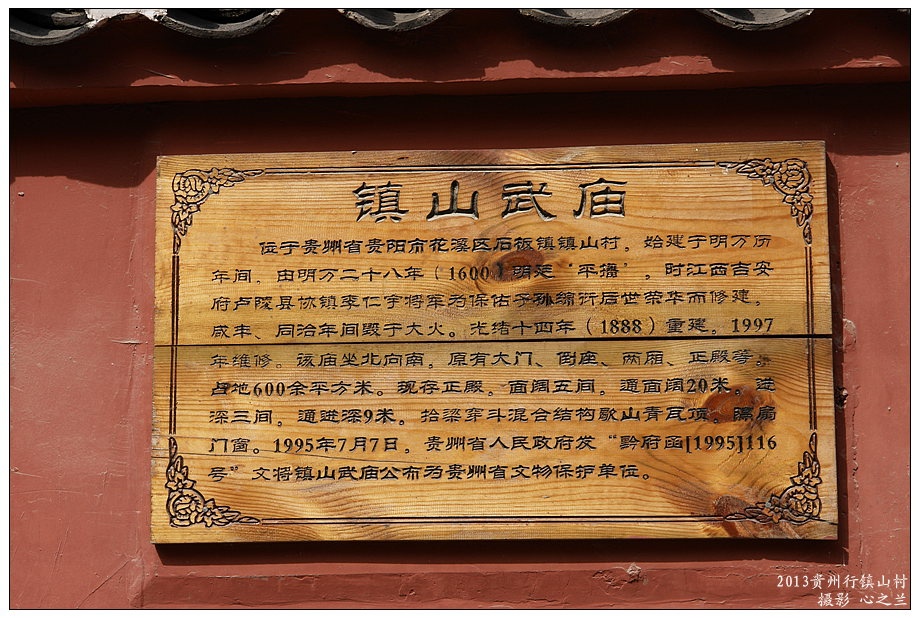 镇山武庙
位于贵州省贵阳市花溪区石板镇镇山村。始建于明万历
年间，由明万二十八年（1600）明廷“平播”。时江西吉安
府卢陵县协镇李仁宇将军为保佑子孙绵衍后世荣华而修建，
咸丰、同治年间毁于大火。光绪十四年（1888）重建。1997
年维修。该庙坐北向南，原有大门、倒座、两厢、正殿等。
占地600余平方米。现存正殿。面阔五间，通面阔20米，进
深三间，通进深9米。抬梁穿斗混合结构歇山青瓦顶。隔扇
门窗。1995年7月7日，贵州省人民政府发“黔府函[1995]116
号”文将镇山武庙公布为贵州省文物保护单位。
2013贵州行镇山村
摄影 心之兰